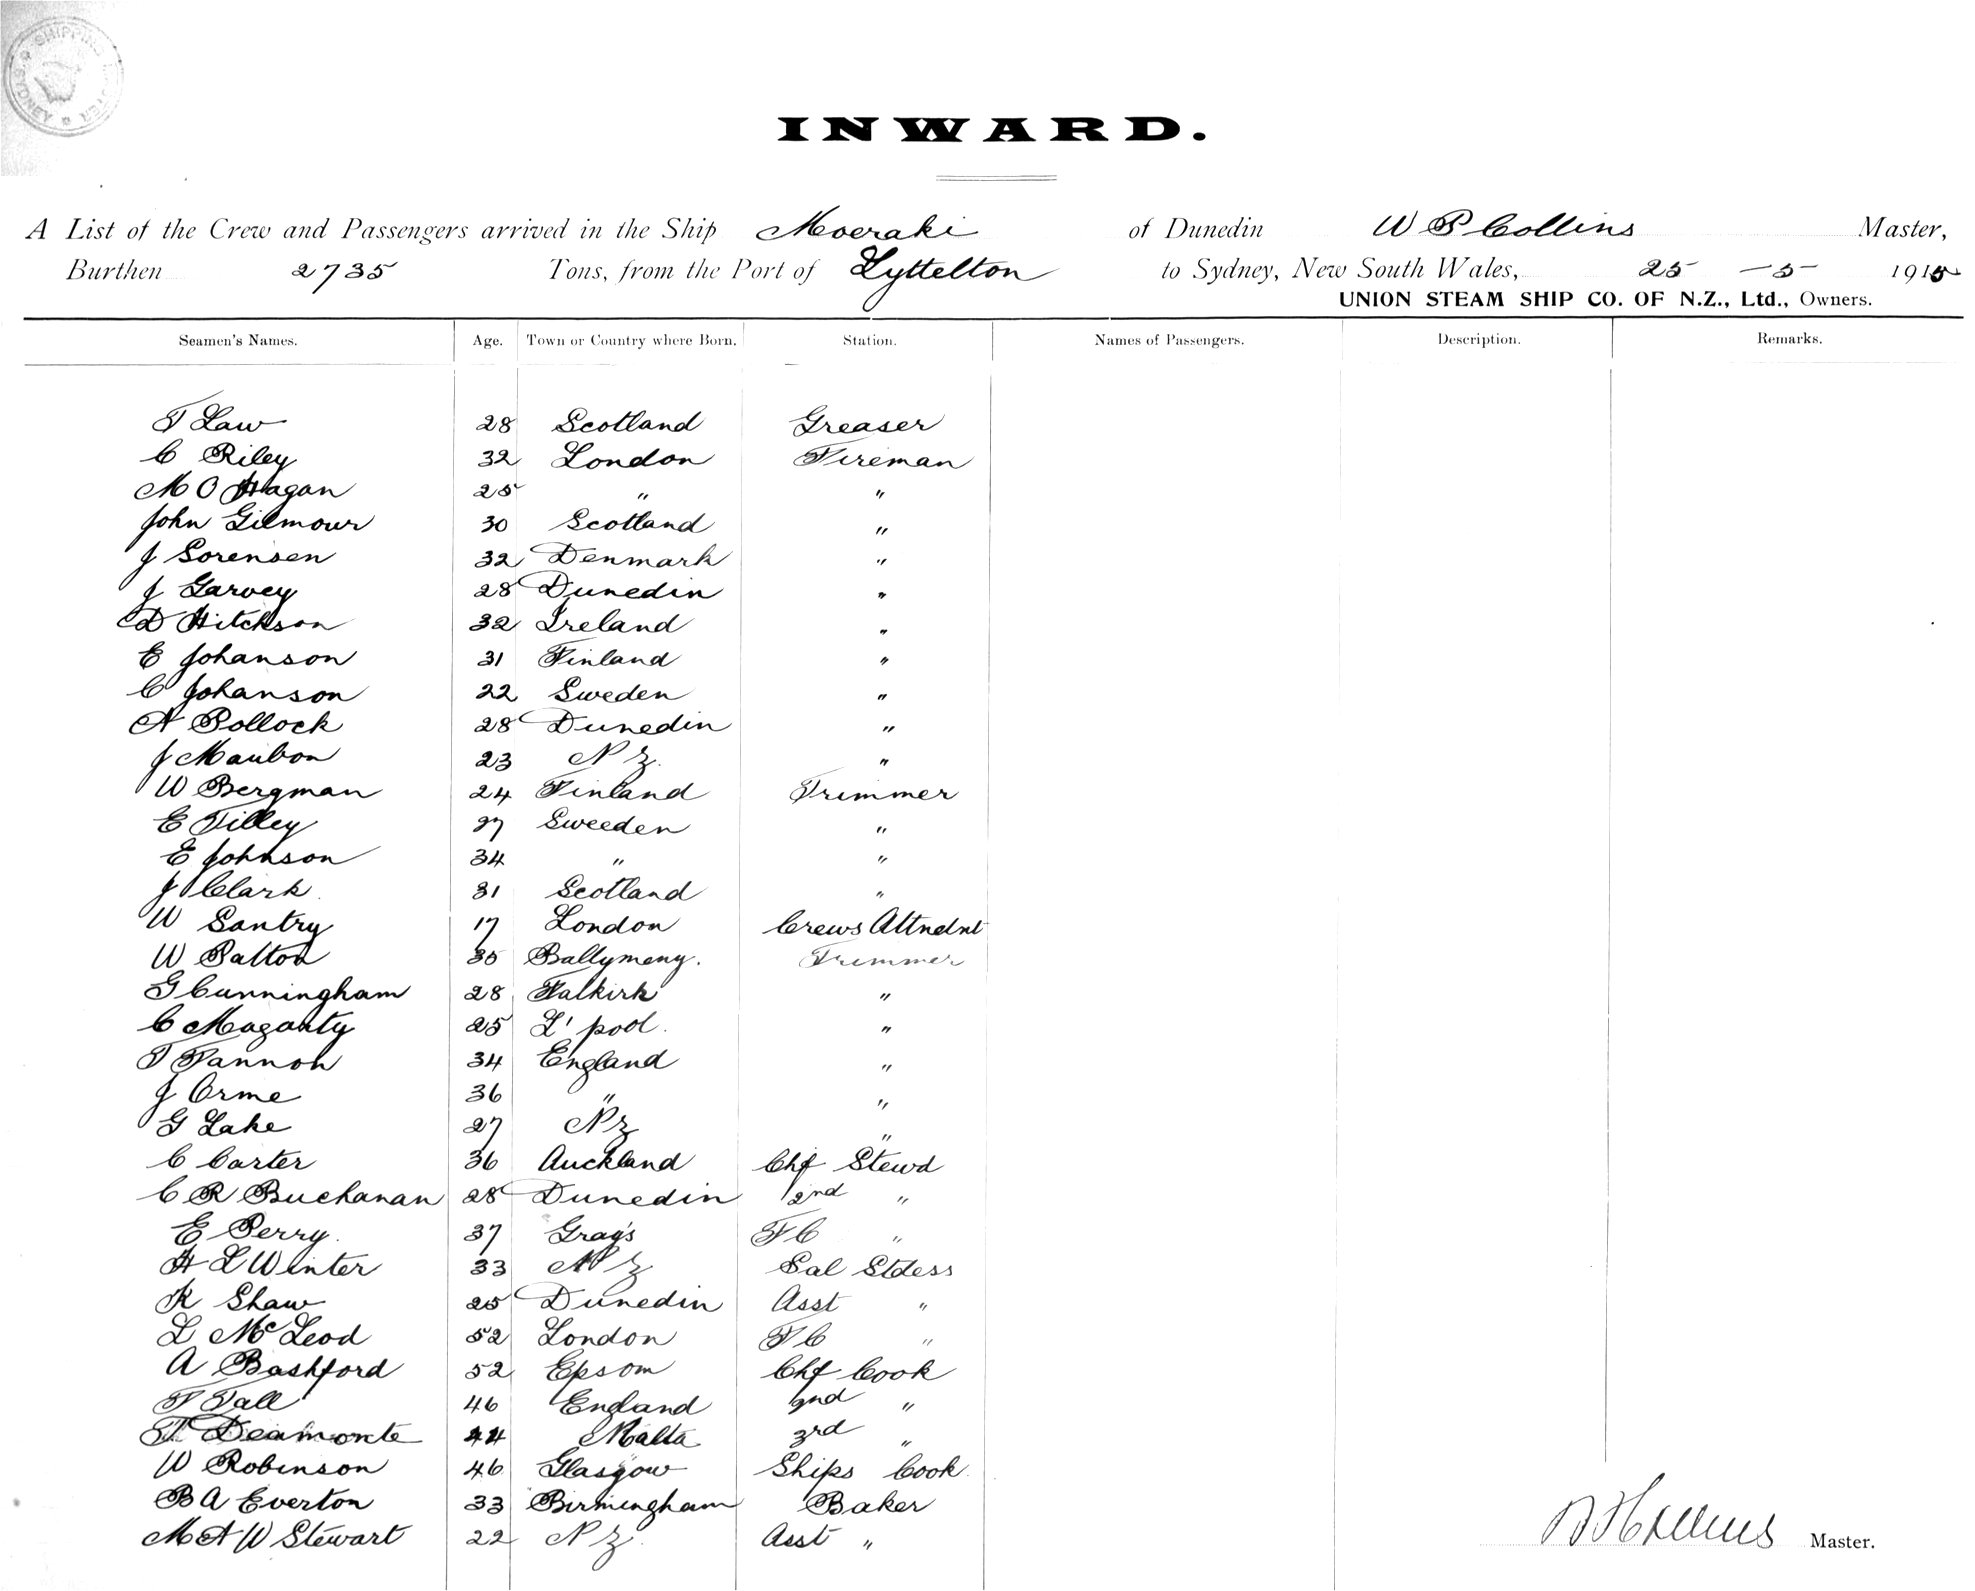 SHIPPING MASTER SYDNEY
INWARD.
A List of the Crew and Passengers arrived in the Ship Moeraki of Dunedin W P Collins Master,
Burthen 2735 Tons, from the Port of Lyttelton to Sydney, New South Wales, 25 - 5 - 1915
UNION STEAM SHIP CO. OF N.Z., Ltd., Owners.
Seamen's Names. Age. Town or Country where Born. Station. Names of Passengers. Description. Remarks.
T Law 28 Scotland Greaser
C Riley 32 London Fireman
M O Hagan 25 " "
John Gilmour 30 Scotland "
J Sorensen 32 Denmark "
J Garvey 28 Dunedin "
D Hitchson 32 Ireland "
E Johanson 31 Finland "
C Johanson 22 Sweden "
A Pollock 28 Dunedin "
J Maubon 23 N Z. "
W Bergman 24 Finland Trimmer
E Tilley 27 Sweeden "
E Johnson 34 " "
J Clark 31 Scotland "
W Santry 17 London Crews Attndnt
W Patton 35 Ballymeny. Trimmer
G Cunningham 28 Falkirk "
C Maganty 25 L'pool. "
T Fannon 34 England "
J Orme 36 " "
G Lake 27 N Z "
C Carter 36 Auckland Chf Stewd
C R Buchanan 28 Dunedin 2nd "
E Perry. 37 Grays F C "
H L Winter 33 N Z Sal Stdess
K Shaw 25 Dunedin Asst "
L McLeod 52 London F C "
A Bashford 52 Epsom Chf Cook
F Tall 46 England 2nd "
T Deamonte 44 Malta 3rd "
W Robinson 46 Glasgow Ships Cook
B A Everton 33 Birmingham Baker
M A W Stewart 22 N Z. Asst "
Master.